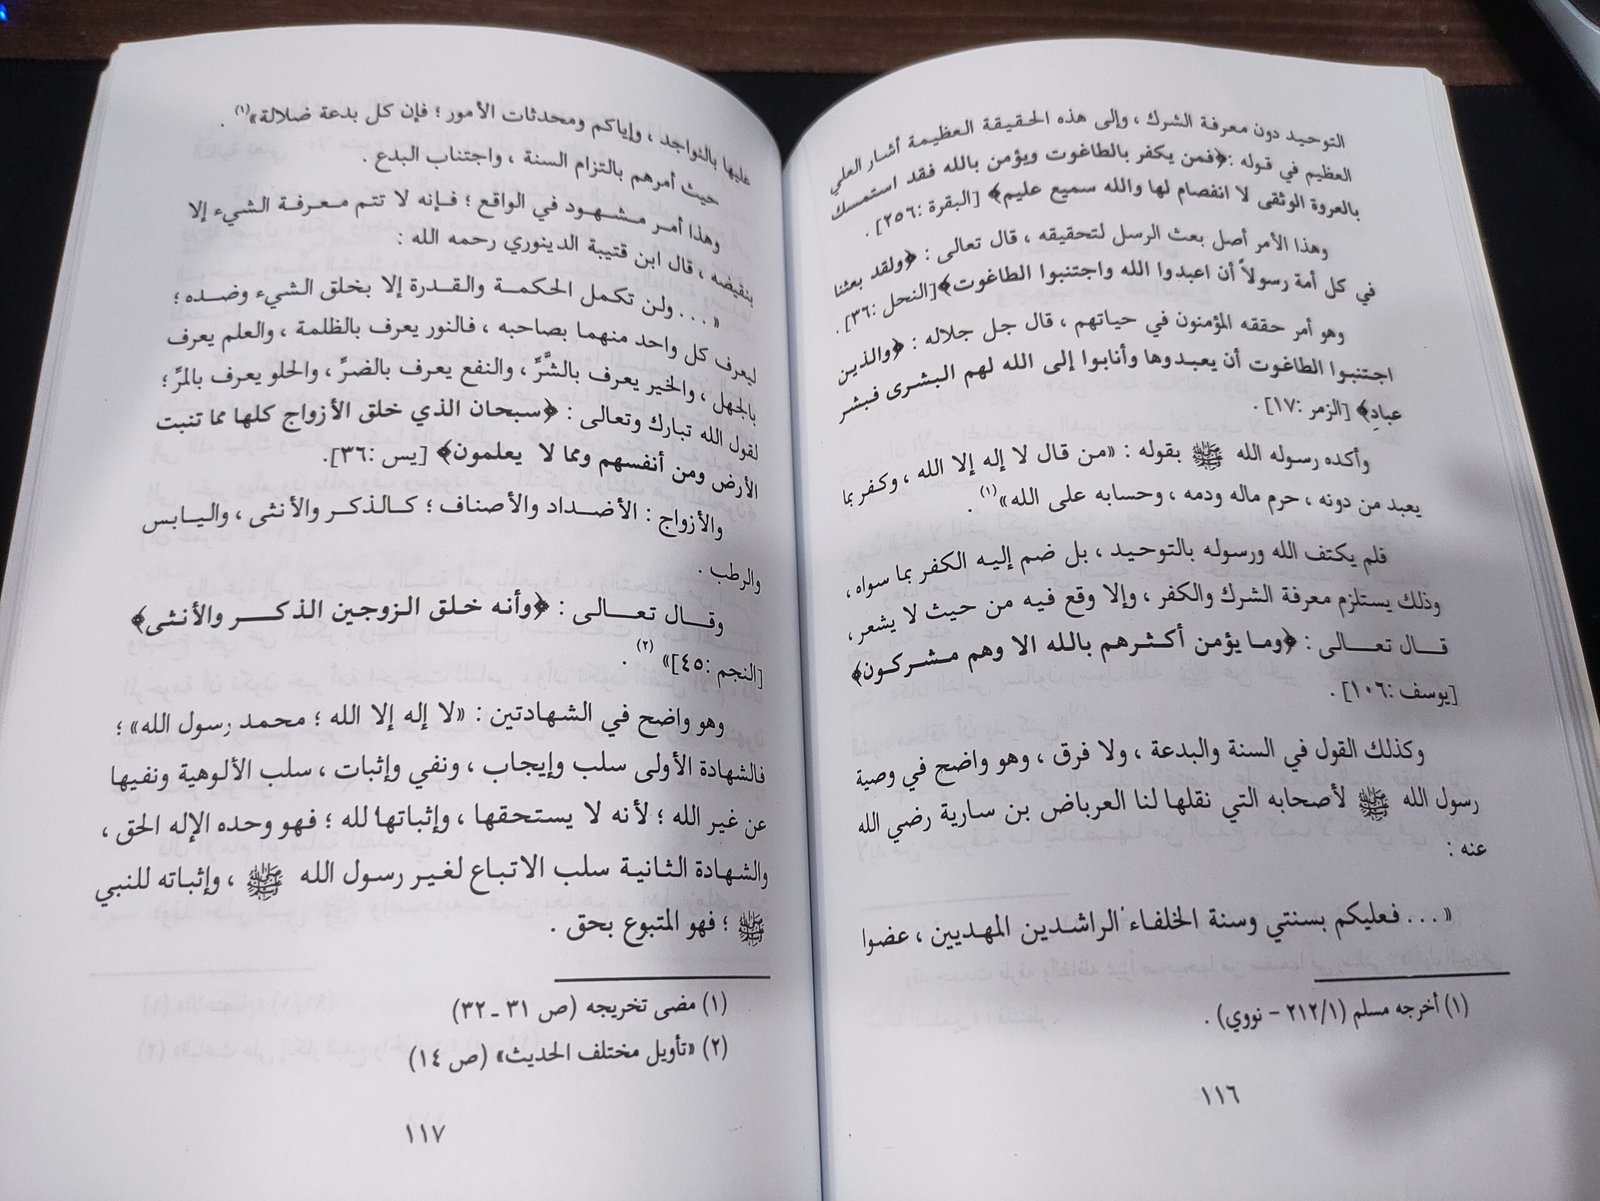 التوحيد دون معرفة الشرك ، وإلى هذه الحقيقة العظيمة أشار العلي
العظيم في قوله : ﴿فمن يكفر بالطاغوت ويؤمن بالله فقد استمسك
بالعروة الوثقى لا انفصام لها والله سميع عليم﴾ [البقرة :٢٥٦] .
وهذا الأمر أصل بعث الرسل لتحقيقه ، قال تعالى : ﴿ولقد بعثنا
في كل أمة رسولاً أن اعبدوا الله واجتنبوا الطاغوت﴾[النحل :٣٦] .
وهو أمر حققه المؤمنون في حياتهم ، قال جل جلاله : ﴿والذين
اجتنبوا الطاغوت أن يعبدوها وأنابوا إلى الله لهم البشرى فبشر
عبادِ﴾ [الزمر :١٧] .
وأكده رسوله الله ﷺ بقوله : «من قال لا إله إلا الله ، وكفر بما
يعبد من دونه ، حرم ماله ودمه ، وحسابه على الله»(١) .
فلم يكتف الله ورسوله بالتوحيد ، بل ضم إليه الكفر بما سواه ،
وذلك يستلزم معرفة الشرك والكفر ، وإلا وقع فيه من حيث لا يشعر ،
قال تعالى : ﴿وما يؤمن أكثرهم بالله الا وهم مشركون﴾
[يوسف :١٠٦] .
وكذلك القول في السنة والبدعة ، ولا فرق ، وهو واضح في وصية
رسول الله ﷺ لأصحابه التي نقلها لنا العرباض بن سارية رضي الله
عنه :
«... فعليكم بسنتي وسنة الخلفاء الراشدين المهديين ، عضوا
(١) أخرجه مسلم (٢١٢/١ – نووي) .
١١٦
عليها بالنواجد ، وإياكم ومحدثات الأمور ؛ فإن كل بدعة ضلالة»(١) .
حيث أمرهم بالتزام السنة ، واجتناب البدع .
وهذا أمر مشهود في الواقع ؛ فإنه لا تتم معرفة الشيء إلا
بنقيضه ، قال ابن قتيبة الدينوري رحمه الله :
«... ولن تكمل الحكمة والقدرة إلا بخلق الشيء وضده ؛
ليعرف كل واحد منهما بصاحبه ، فالنور يعرف بالظلمة ، والعلم يعرف
بالجهل ، والخير يعرف بالشَّرِّ ، والنفع يعرف بالضرِّ ، والحلو يعرف بالمرِّ ؛
لقول الله تبارك وتعالى : ﴿سبحان الذي خلق الأزواج كلها مما تنبت
الأرض ومن أنفسهم ومما لا يعلمون﴾ [يس :٣٦].
والأزواج : الأضداد والأصناف ؛ كالذكر والأنثى ، واليابس
والرطب .
وقال تعالى : ﴿وأنه خلق الزوجين الذكر والأنثى﴾
[النجم :٤٥]»(٢) .
وهو واضح في الشهادتين : «لا إله إلا الله ؛ محمد رسول الله» ؛
فالشهادة الأولى سلب وإيجاب ، ونفي وإثبات ، سلب الألوهية ونفيها
عن غير الله ؛ لأنه لا يستحقها ، وإثباتها لله ؛ فهو وحده الإله الحق ،
والشهادة الثانية سلب الاتباع لغير رسول الله ﷺ ، وإثباته للنبي
ﷺ ؛ فهو المتبوع بحق .
(١) مضى تخريجه (ص ٣١ ـ ٣٢)
(٢) «تأويل مختلف الحديث» (ص ١٤)
١١٧